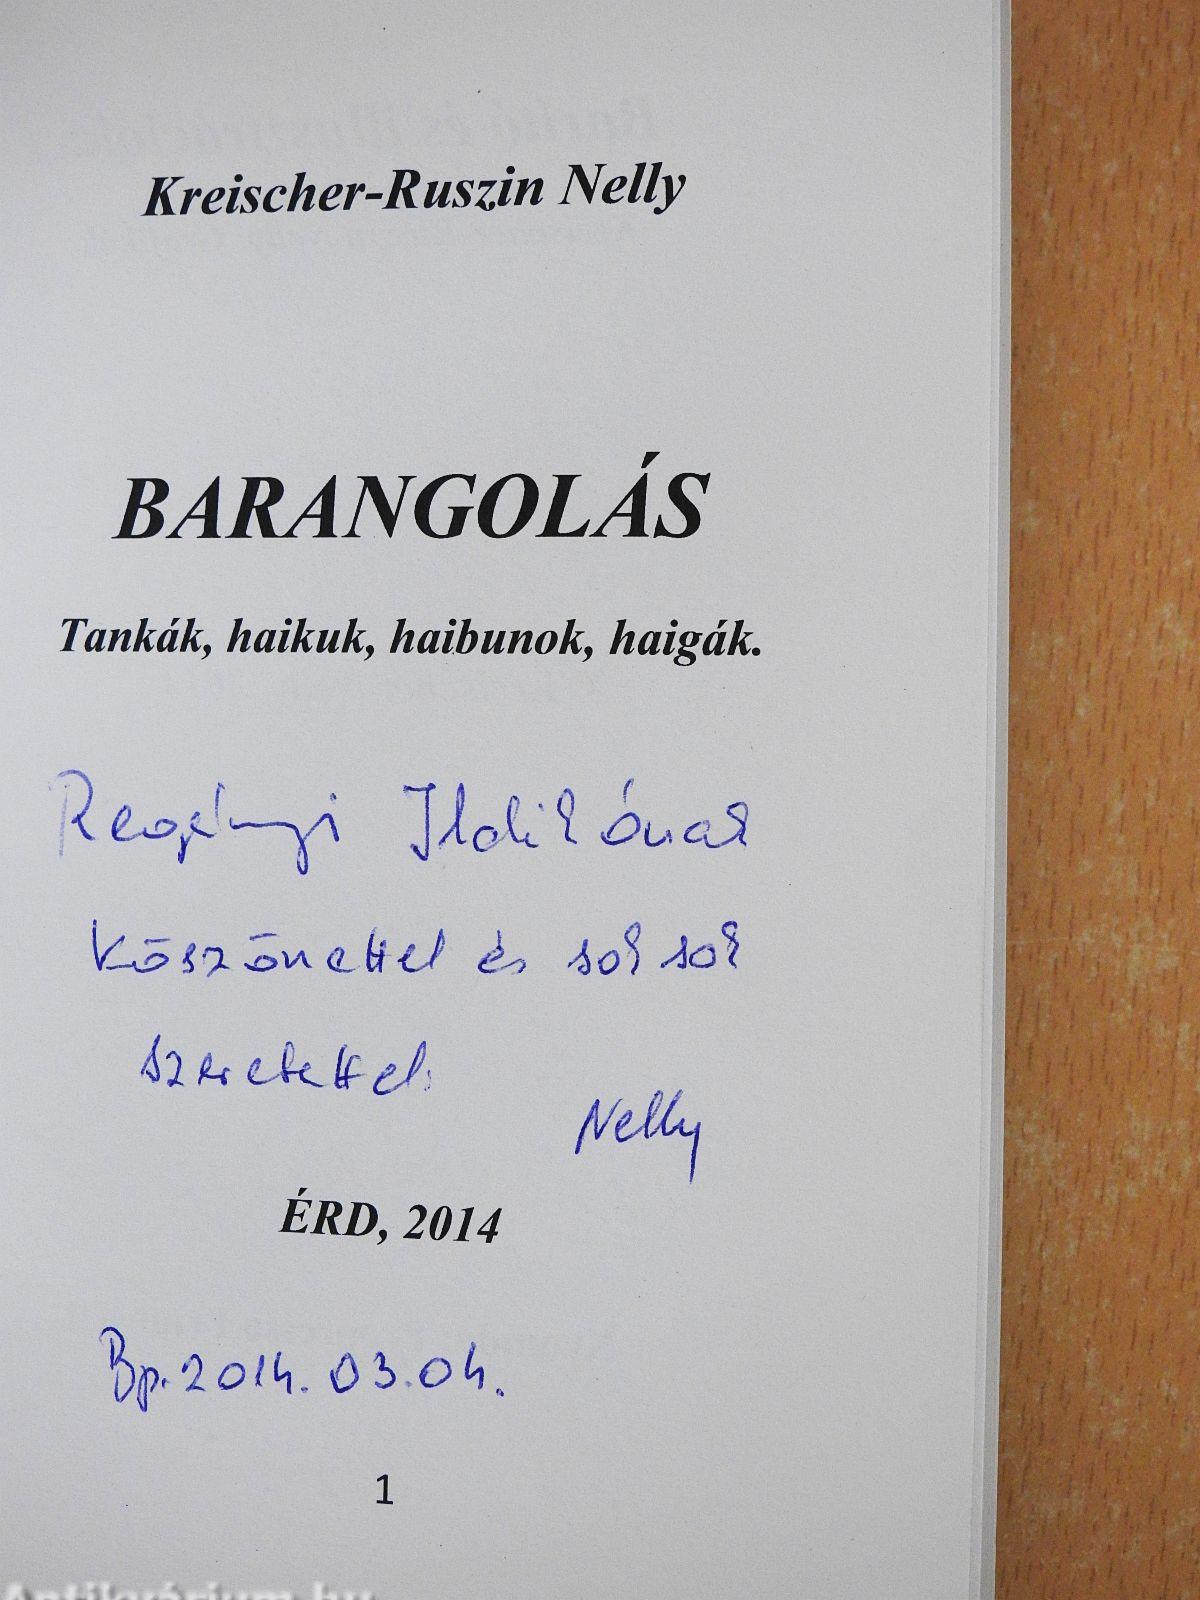 Kreischer-Ruszin Nelly
BARANGOLÁS
Tankák, haikuk, haibunok, haigák.
Regényi Ildikónak
Köszönettel és sok sok
szeretettel:
Nelly
ÉRD, 2014
Bp. 2014. 03. 04.
1
Antikvárium.hu